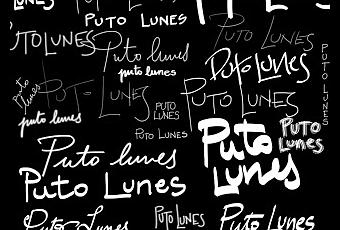 Puto Lunes
PUTO LUNES
Puto Lunes
Puto lunes
puto lunes
Puto Lunes
PUTO LUNES
puto lunes
PUTO LUNES
PUTO LUNES
PUTO
LUNES
puto lunes
Puto Lunes
Puto
Lunes
Puto
Lunes
Puto lunes
Puto Lunes
Puto Lunes
PUTO
LUNES
Puto Lunes